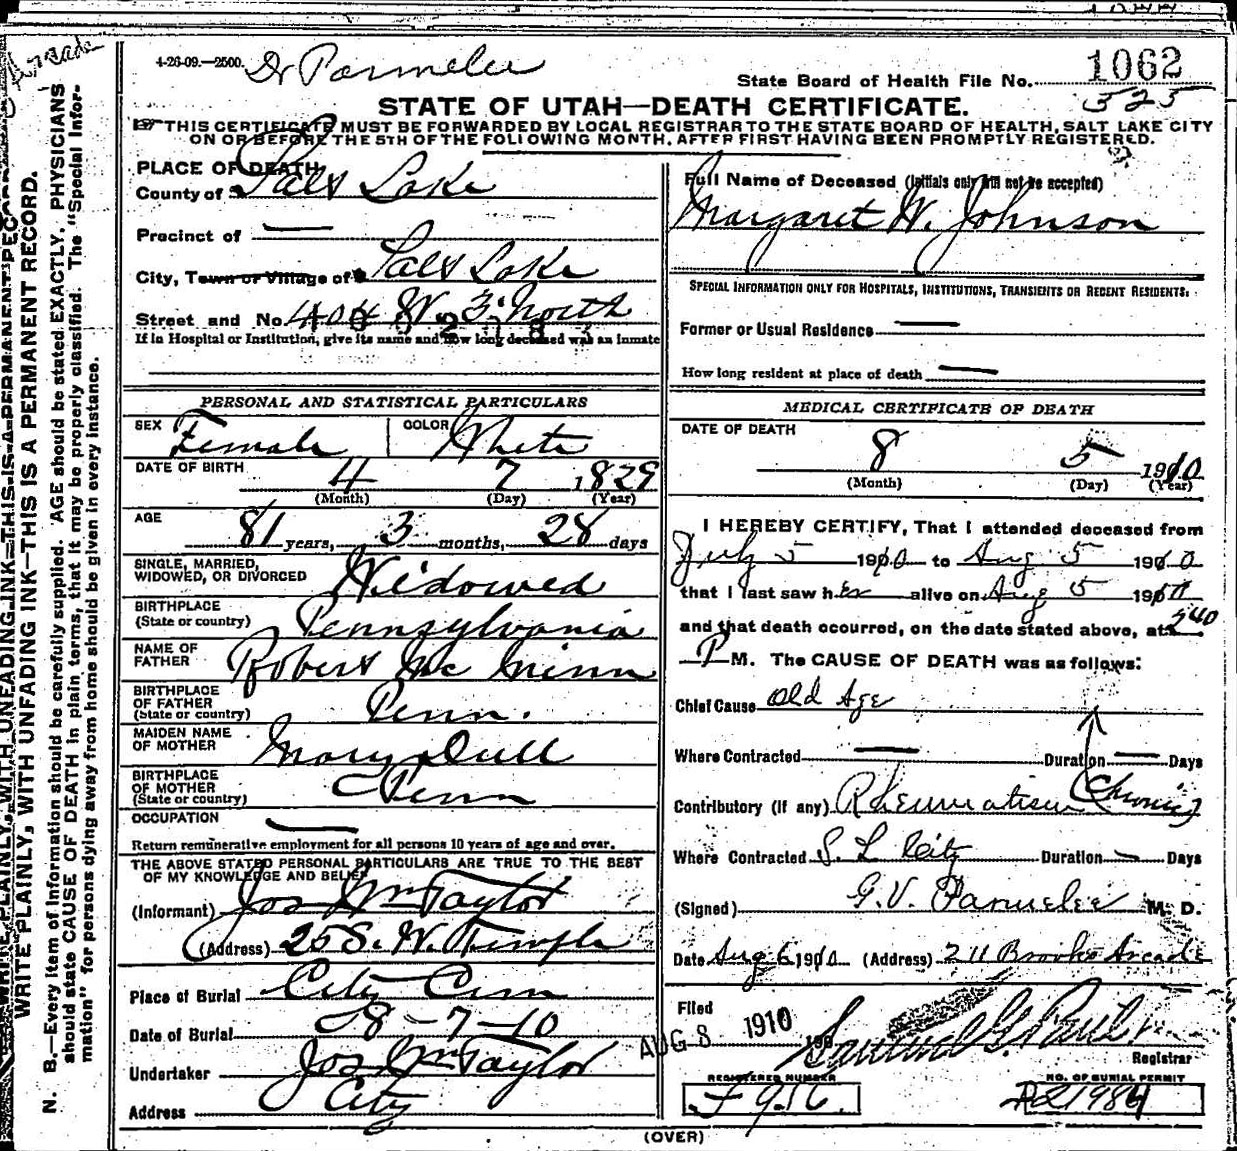 4-26-09.—2500. Dr Parmelee
State Board of Health File No. 1062
525
STATE OF UTAH—DEATH CERTIFICATE.
THIS CERTIFICATE MUST BE FORWARDED BY LOCAL REGISTRAR TO THE STATE BOARD OF HEALTH, SALT LAKE CITY
ON OR BEFORE THE 5TH OF THE FOLLOWING MONTH, AFTER FIRST HAVING BEEN PROMPTLY REGISTERED.
WRITE PLAINLY, WITH UNFADING INK—THIS IS A PERMANENT RECORD.
N. B.—Every item of information should be carefully supplied. AGE should be stated EXACTLY. PHYSICIANS
should state CAUSE OF DEATH in plain terms, that it may be properly classified. The "Special Infor-
mation" for persons dying away from home should be given in every instance.
PLACE OF DEATH
County of Salt Lake
Precinct of —
City, Town or Village of Salt Lake
Street and No. 404 W. 3 North
If in Hospital or Institution, give its name and how long deceased was an inmate
PERSONAL AND STATISTICAL PARTICULARS
SEX Female COLOR White
DATE OF BIRTH 4 7 1829
(Month) (Day) (Year)
AGE 81 years, 3 months, 28 days
SINGLE, MARRIED,
WIDOWED, OR DIVORCED Widowed
BIRTHPLACE
(State or country) Pennsylvania
NAME OF
FATHER Robert Mc Minn
BIRTHPLACE
OF FATHER
(State or country) Penn.
MAIDEN NAME
OF MOTHER Mary Dull
BIRTHPLACE
OF MOTHER
(State or country) Penn
OCCUPATION —
Return remunerative employment for all persons 10 years of age and over.
THE ABOVE STATED PERSONAL PARTICULARS ARE TRUE TO THE BEST
OF MY KNOWLEDGE AND BELIEF
(Informant) Jos Wm Taylor
(Address) 25 S. W. Temple
Place of Burial City Cem
Date of Burial 8-7-10
Undertaker Jos Wm Taylor
Address City
Full Name of Deceased (Initials only will not be accepted)
Margaret W. Johnson
SPECIAL INFORMATION ONLY FOR HOSPITALS, INSTITUTIONS, TRANSIENTS OR RECENT RESIDENTS:
Former or Usual Residence —
How long resident at place of death —
MEDICAL CERTIFICATE OF DEATH
DATE OF DEATH
8 5 1910
(Month) (Day) (Year)
I HEREBY CERTIFY, That I attended deceased from
July 5 1910 to Aug 5 1910
that I last saw her alive on Aug 5 1910
and that death occurred, on the date stated above, at 540
P M. The CAUSE OF DEATH was as follows:
Chief Cause Old Age
Where Contracted — Duration — Days
Contributory (if any) Rheumatism (Chronic)
Where Contracted S. L City Duration — Days
(Signed) G. V. Parmelee M. D.
Date Aug 6 1910 (Address) 211 Brooks Arcade
Filed AUG 8 1910 Samuel G. Paul
Registrar
REGISTERED NUMBER NO. OF BURIAL PERMIT
F 916. A21984
(OVER)